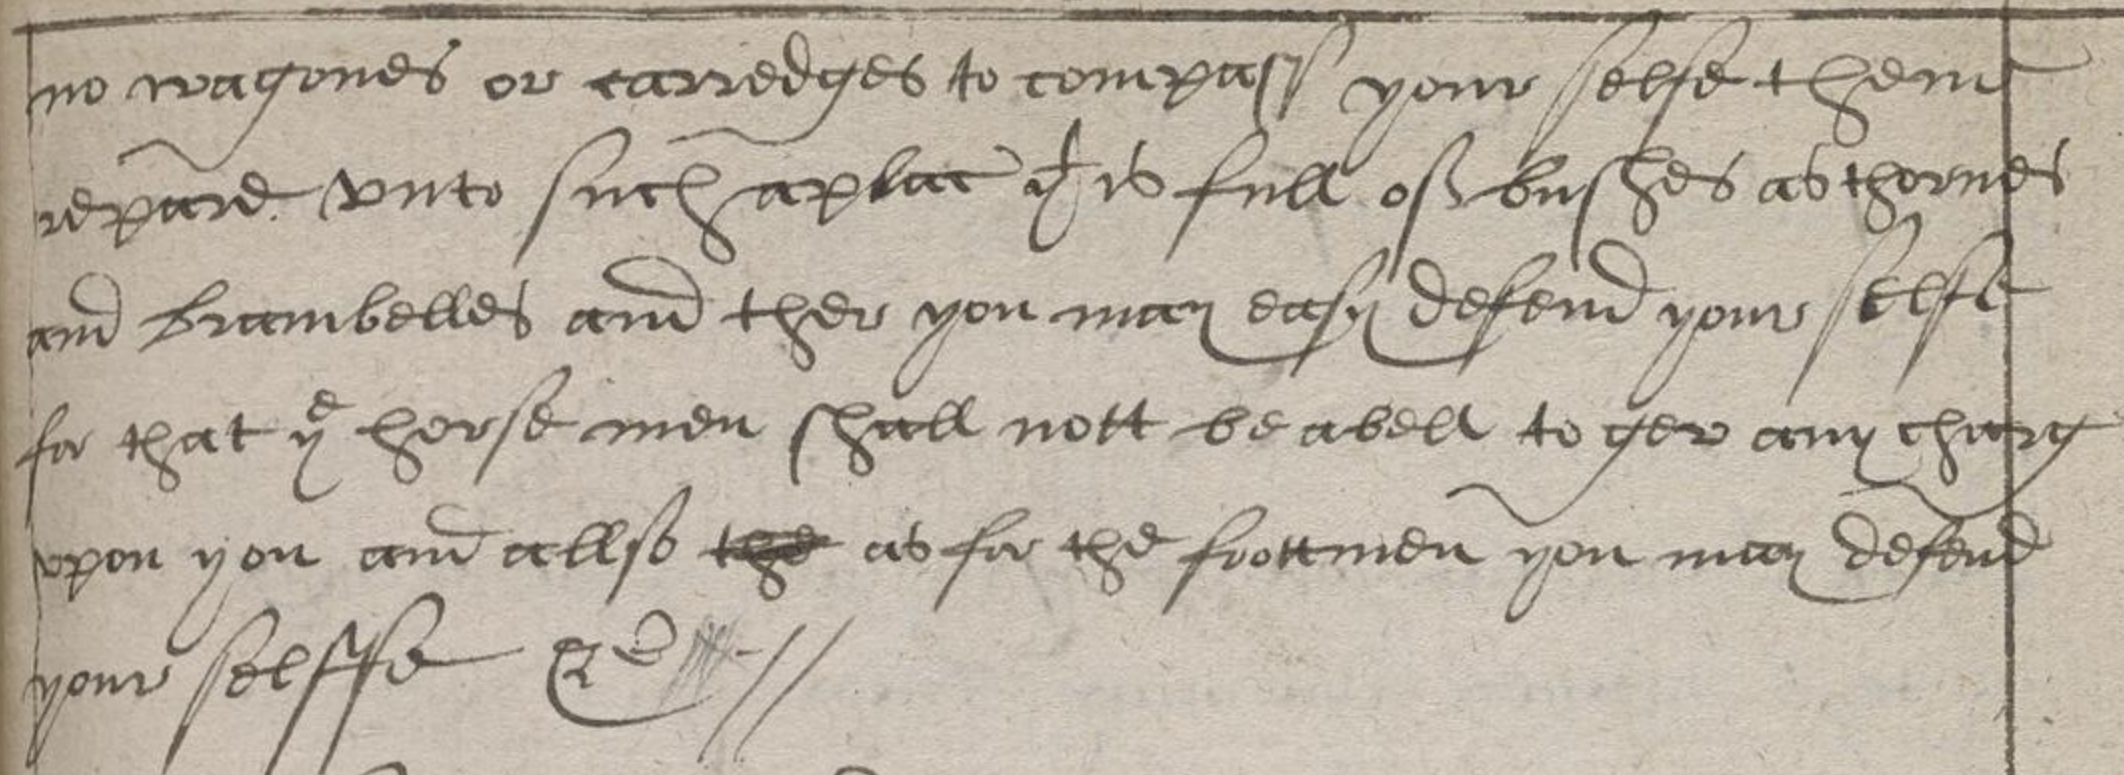 no wagones or carredges to compass your selfe them
repare vnto such a plac yt is full off bushes as thornes
and brambelles and ther you may easy defend your selfe
for that ye horse men shall nott be abell to gev any charg
vpon you and allso the as for the foottmen you may defend
your selffe &c //